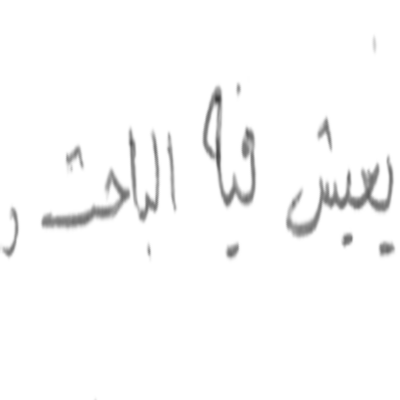 يعيش فيه الباحث و